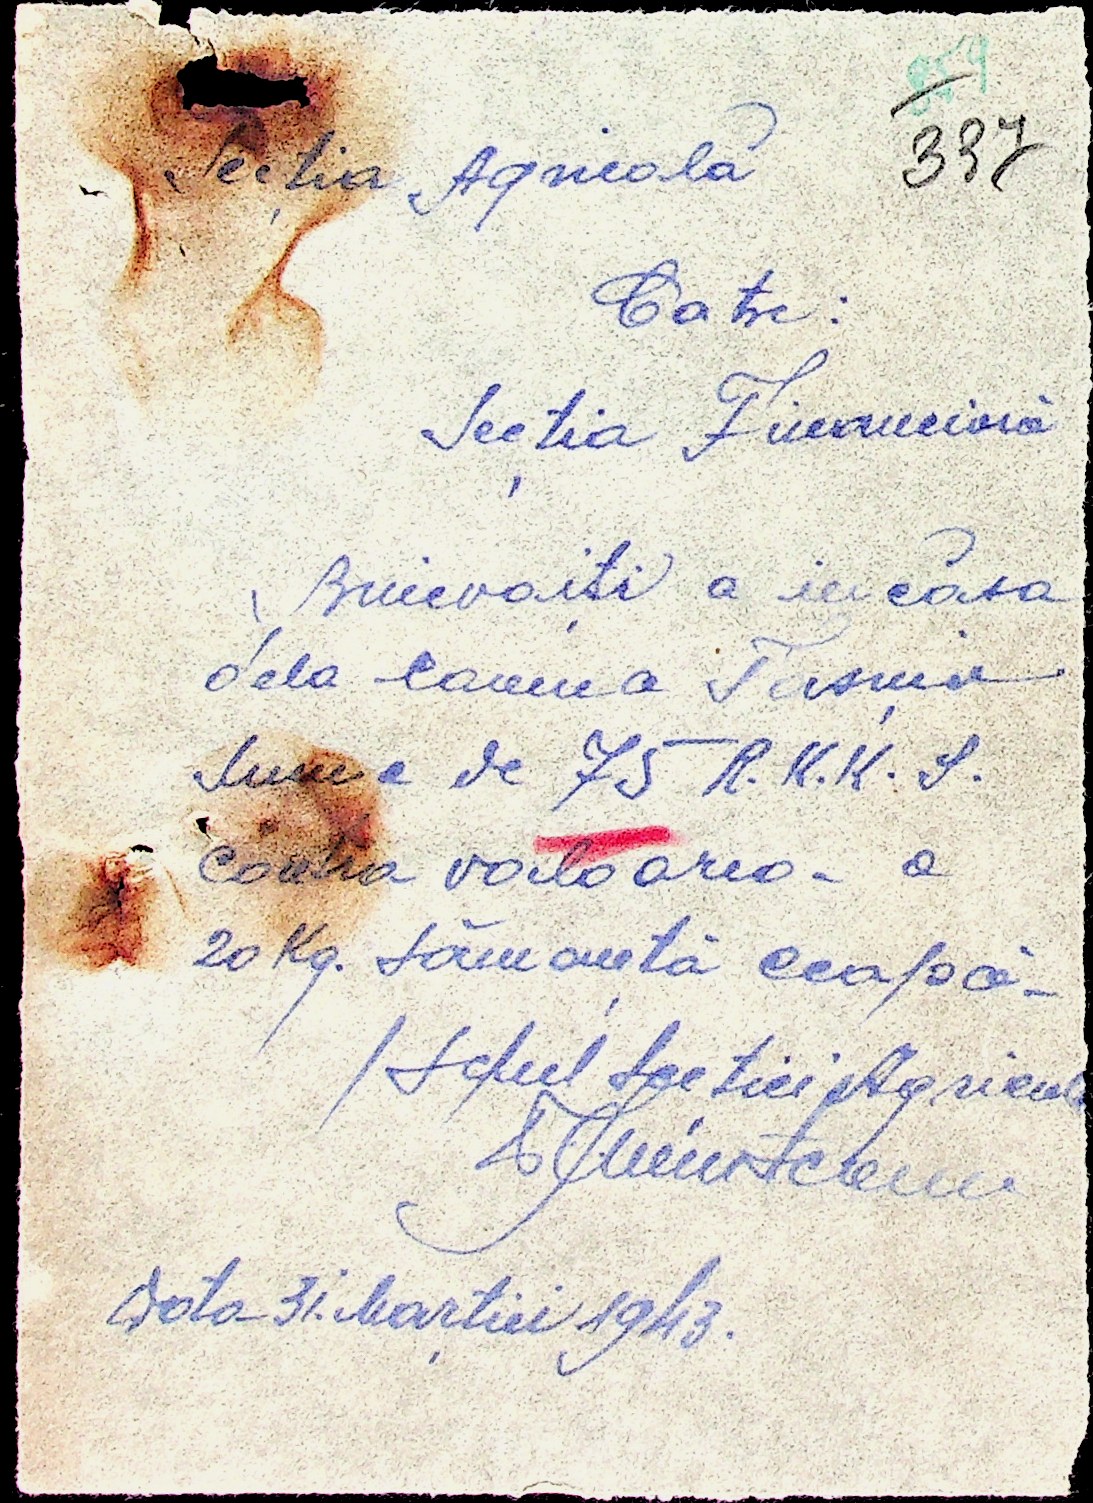 337
Secția Agricolă
Catre:
Secția Financiară
Binevoiți a incăsa
dela
Suma de 75 R.K.K.S.
contra valoarea a
20 Kg. sămânță ceapă
Seful Secției Agricole
Data 31. Marției 1943.